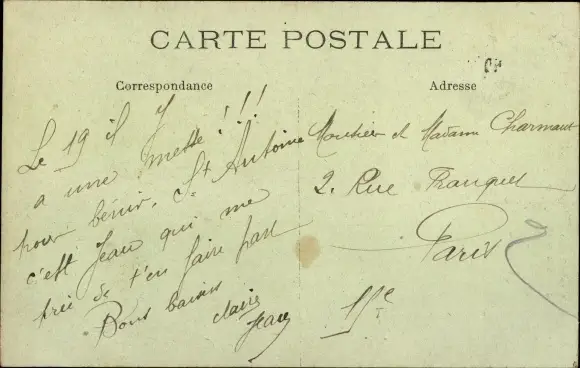 CARTE POSTALE
Correspondance
Le 19 il y
a une messe !!!
pour bénir, St Antoine
c'est Jean qui me
prie de t'en faire part
Bons baisers
claire
Jean
Adresse
Monsieur et Madame Charmant
2. Rue
Paris